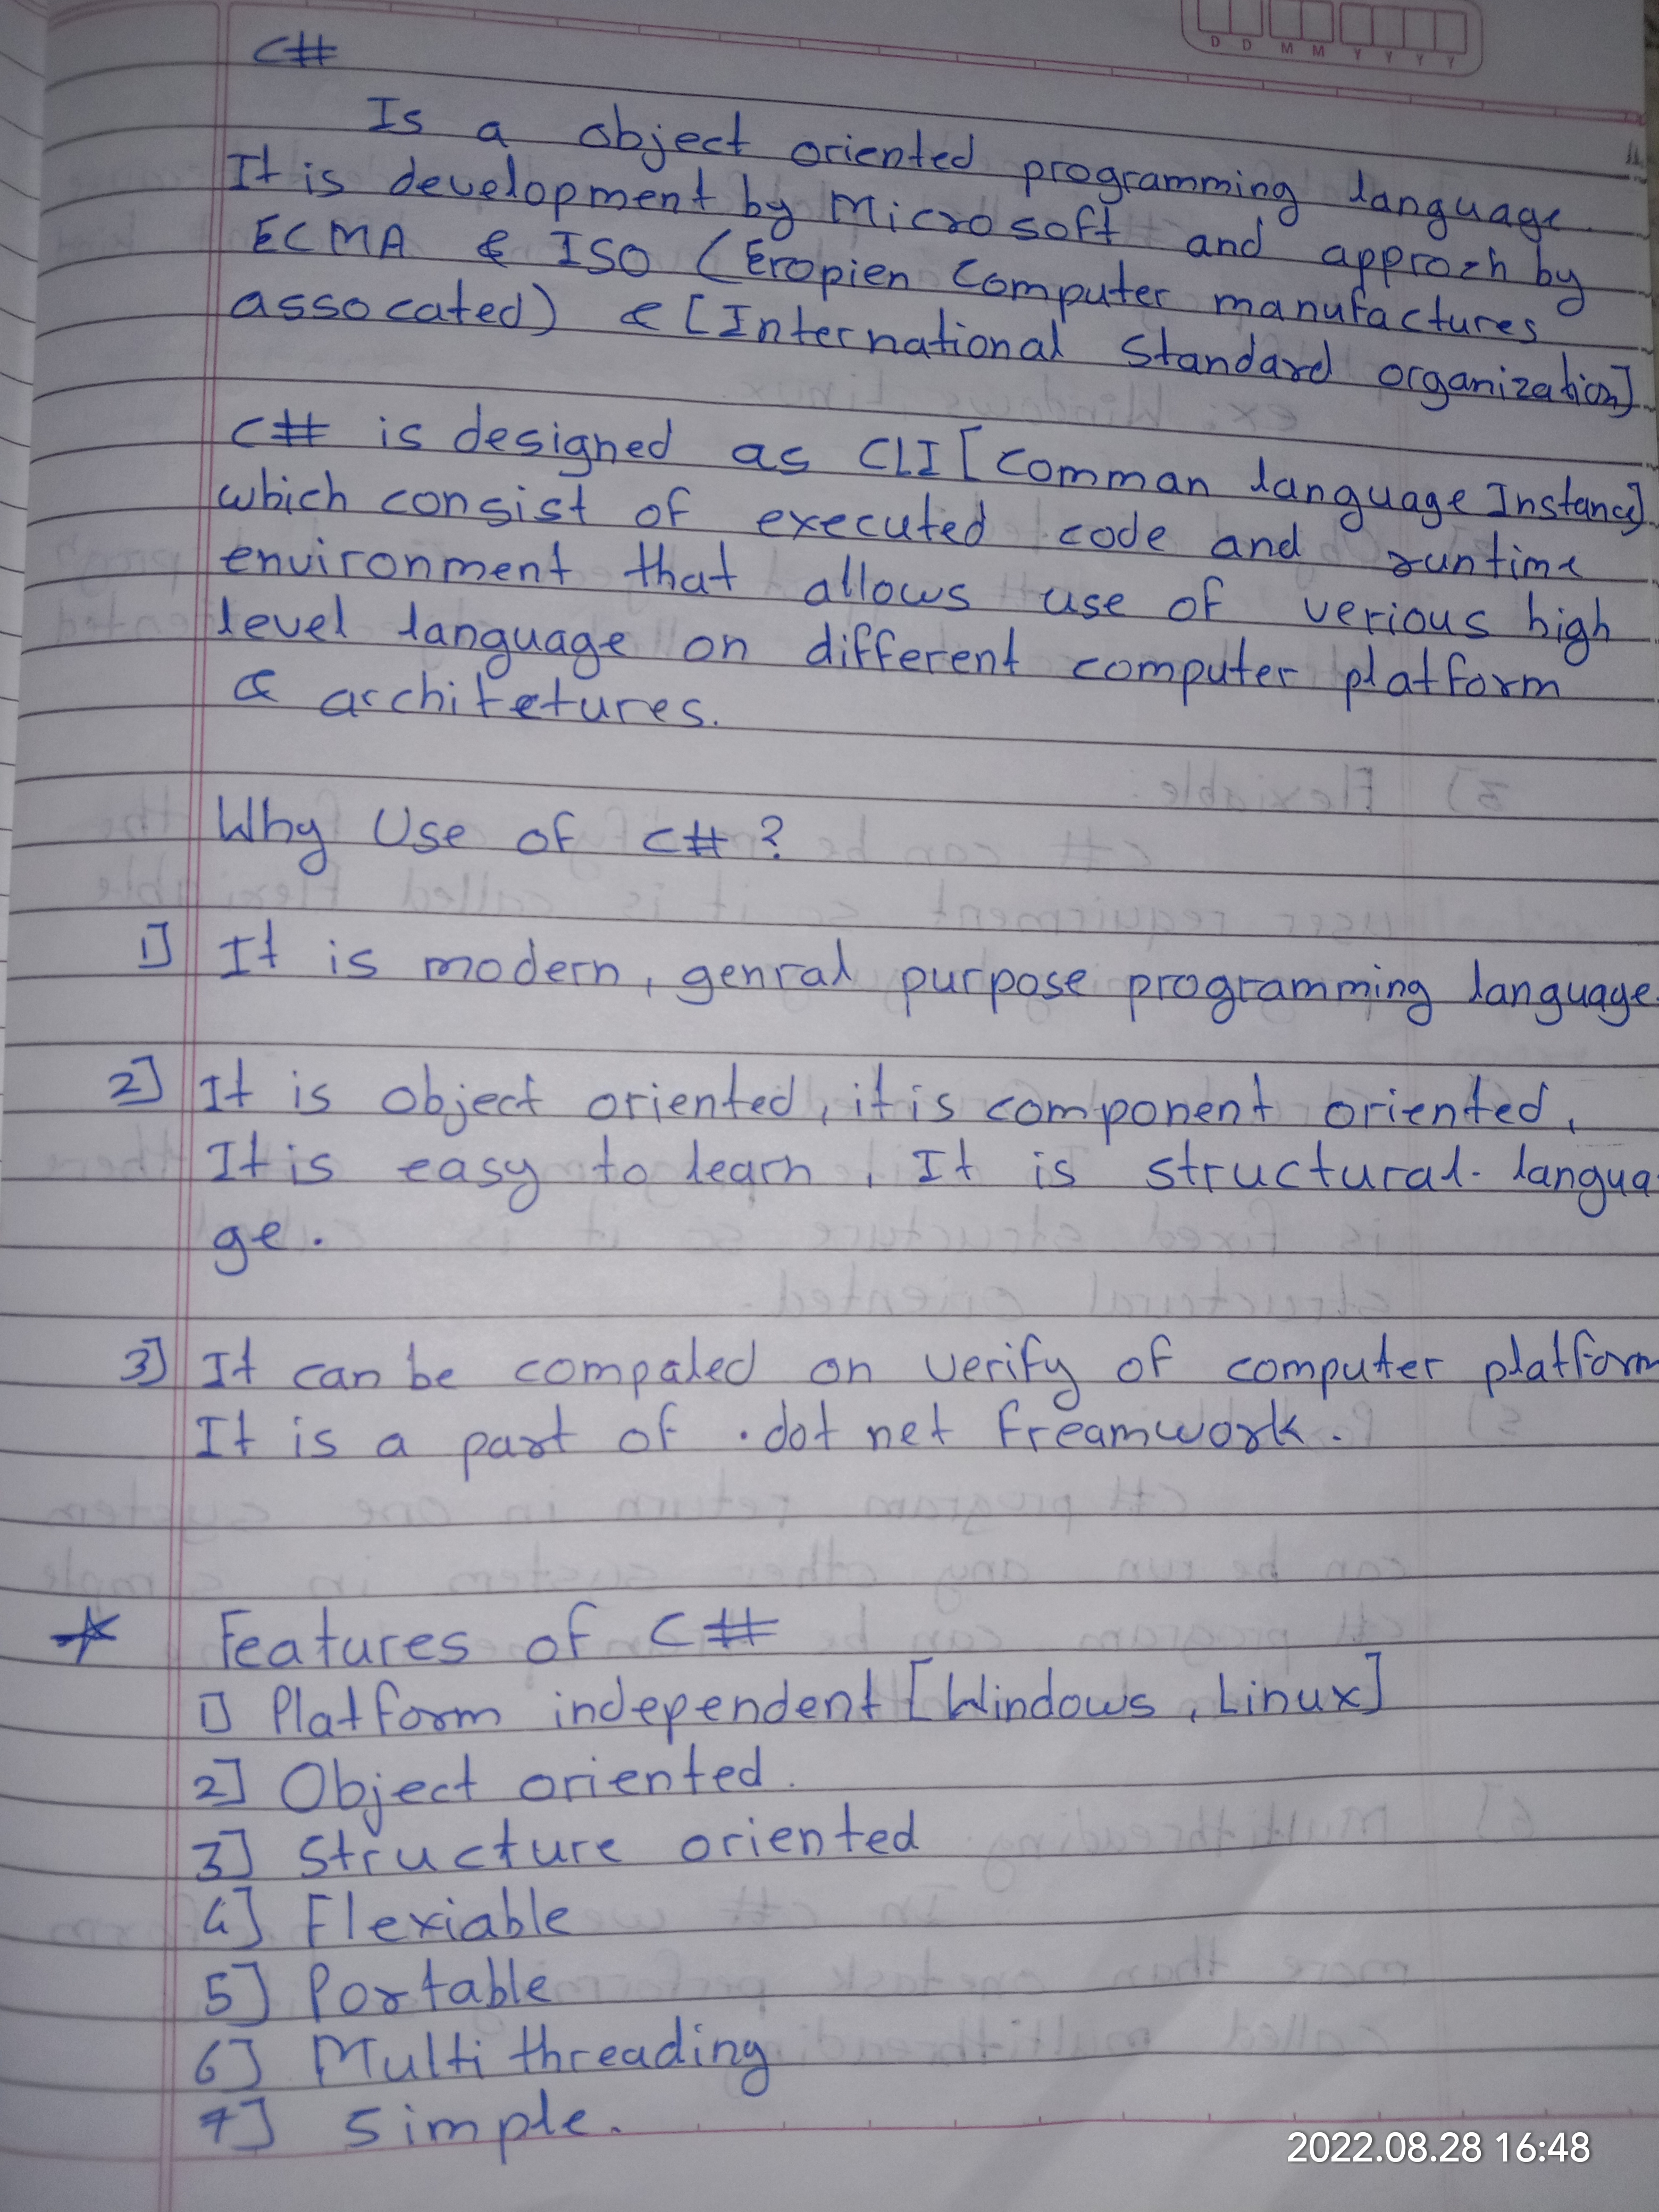 D D M M Y Y Y Y
C#
Is a object oriented programming language.
It is development by Microsoft and approzh by
ECMA & ISO (Eropien Computer manufactures
assocated) & [International Standard organization]
C# is designed as CLI [Comman language Instance]
which consist of executed code and runtime
environment that allows use of verious high
level language on different computer platform
& architetures.
Why Use of C# ?
1] It is modern, genral purpose programming language.
2] It is object oriented, it is component oriented,
It is easy to learn, It is structural- langua
ge.
3] It can be compaled on verify of computer platform
It is a part of .dot net freamwork.
Features of C#
1] Platform independent [Windows, Linux]
2] Object oriented.
3] Structure oriented
4] Flexiable
5] Portable
6] Multi threading
7] Simple.
2022.08.28 16:48